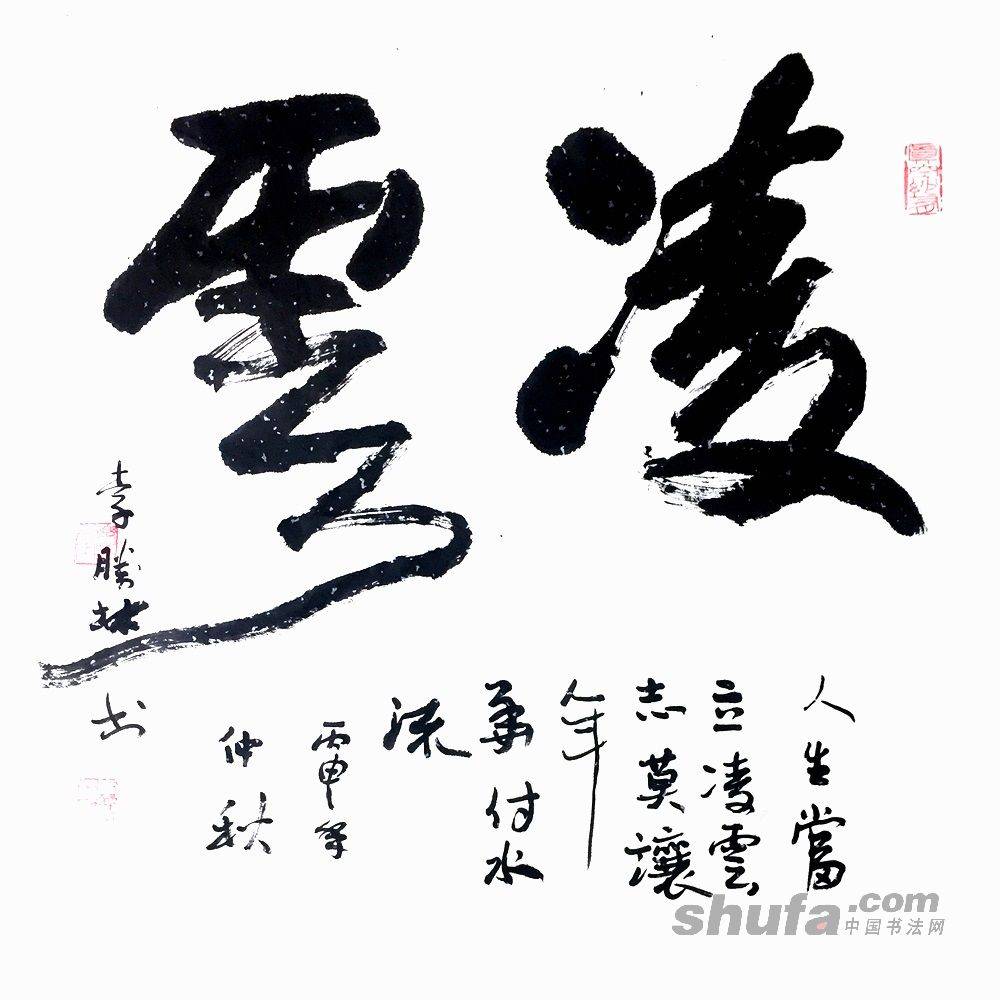 凌雲
人生當
立凌雲
志莫讓
年
華付水
流
丙申年
仲秋
李勝林书
shufa.com
中国书法网